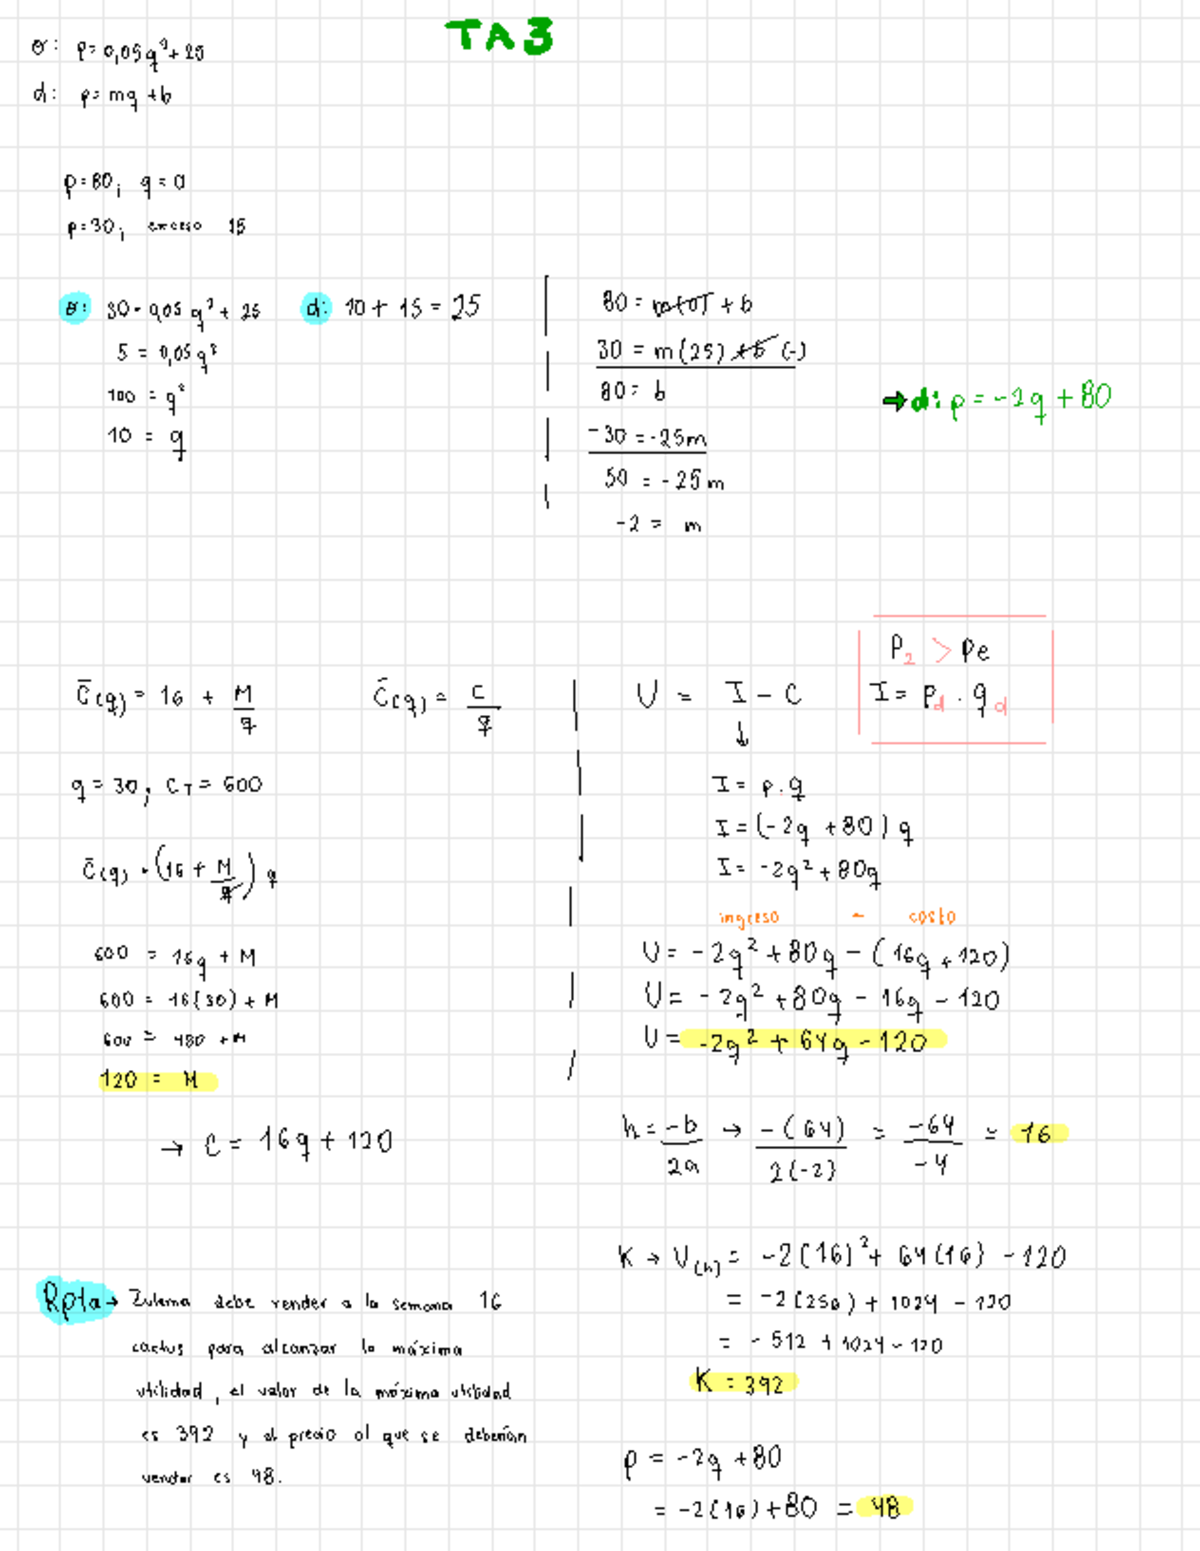 TA3
o: p=0,05q²+25
d: p=mq+b
p=80; q=0
p=30; exceso 15
o: 30=0,05q²+25
5 = 0,05q²
100 = q²
10 = q
d: 10+15=25
80 = m(0) + b
30 = m(25) + b (-)
80 = b
-30 = -25m
50 = -25m
-2 = m
→ d: p = -2q + 80
C̄(q) = 16 + M/q
C̄(q) = C/q
q = 30; CT = 600
C̄(q) = (16 + M/q) q
600 = 16q + M
600 = 16(30) + M
600 = 480 + M
120 = M
→ C = 16q + 120
U = I - C
↓
P2 > Pe
I = Pd . qd
I = p.q
I = (-2q + 80) q
I = -2q² + 80q
ingreso - costo
U = -2q² + 80q - (16q + 120)
U = -2q² + 80q - 16q - 120
U = -2q² + 64q - 120
h = -b/2a → -(64)/2(-2) = -64/-4 = 16
K → U(h) = -2(16)² + 64(16) - 120
= -2(256) + 1024 - 120
= -512 + 1024 - 120
K = 392
p = -2q + 80
= -2(16) + 80 = 48
Rpta → Zulema debe vender a la semana 16
cactus para alcanzar la máxima
utilidad, el valor de la máxima utilidad
es 392 y el precio al que se deberían
vender es 48.